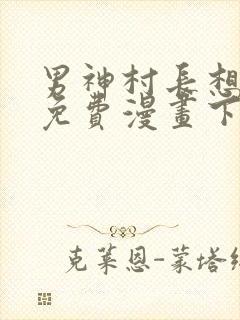 男神村長想
免費漫畫下
克萊恩-蒙塔